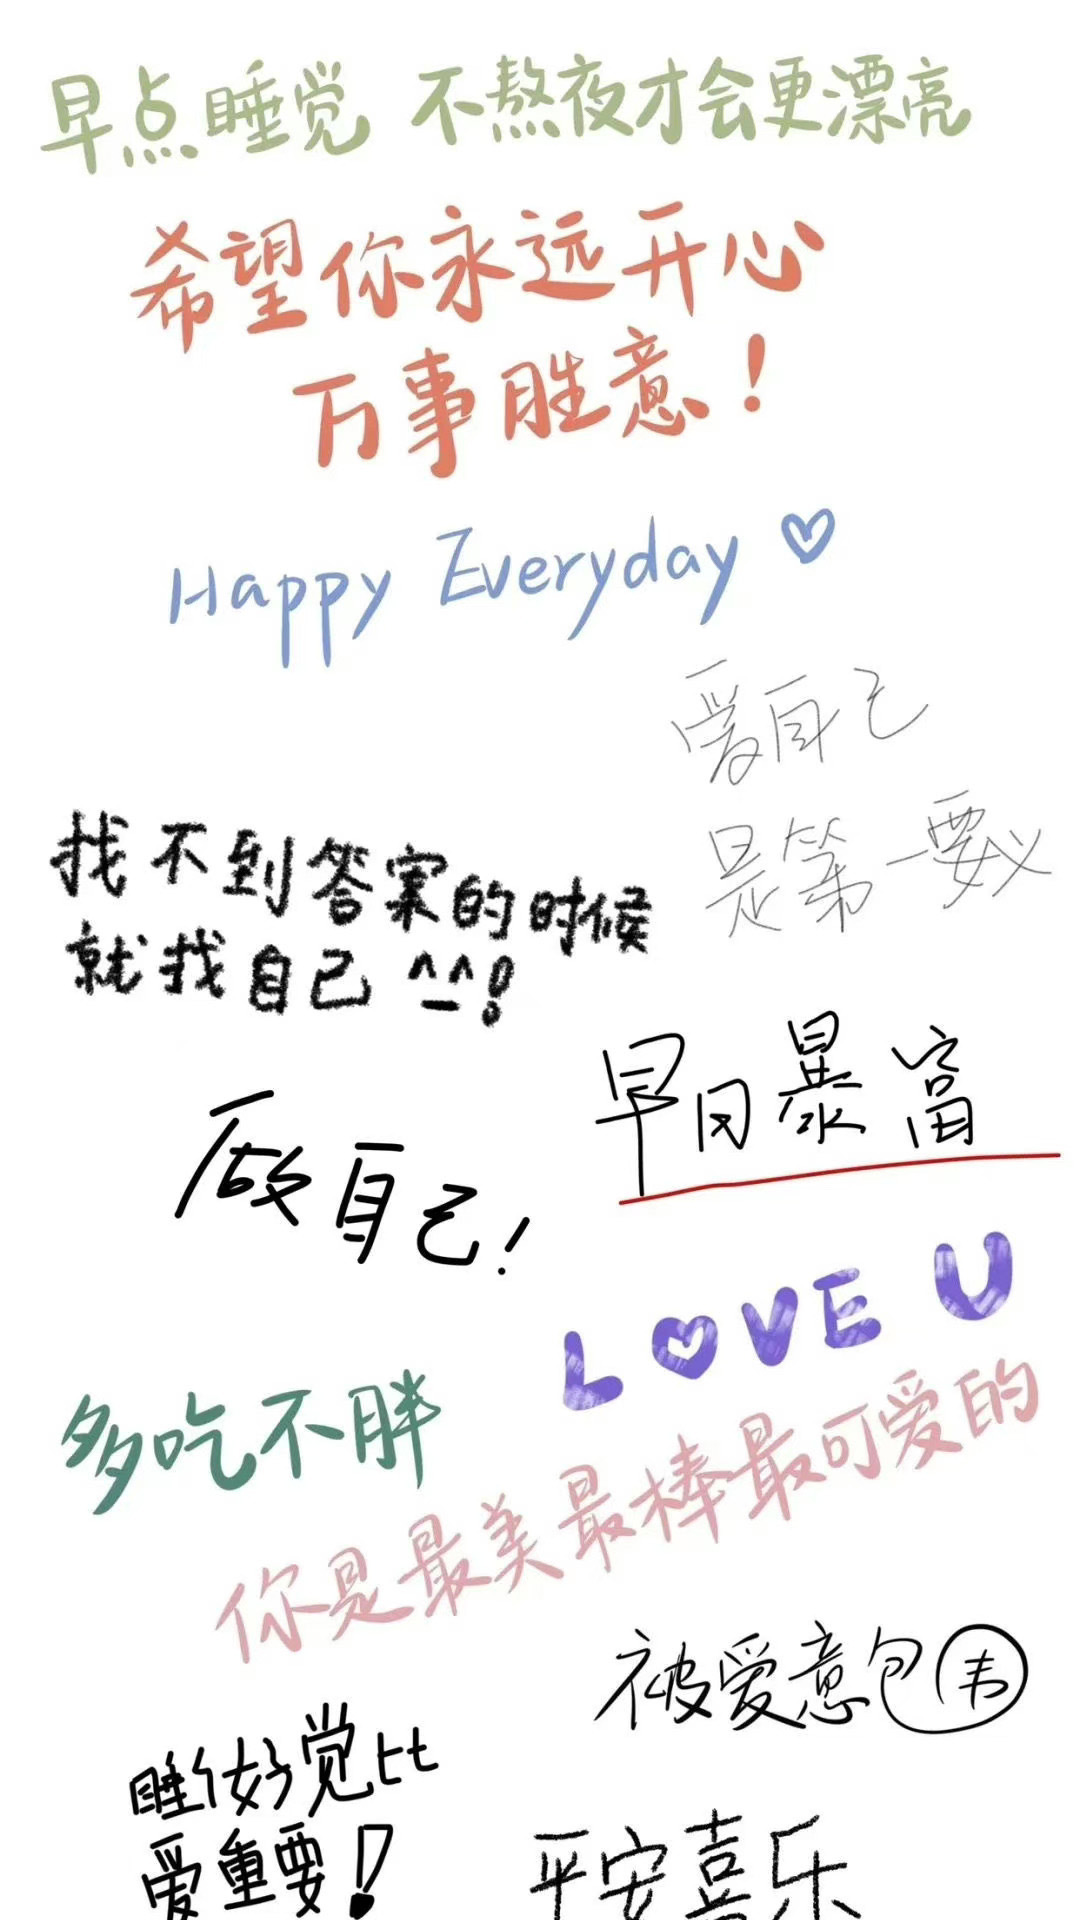 早点睡觉 不熬夜才会更漂亮
希望你永远开心
万事胜意！
Happy Everyday ♡
爱自己
是第一要义
找不到答案的时候
就找自己 ^_^!
早日暴富
做自己!
LOVE U
多吃不胖
你是最美最棒最可爱的
被爱意包韦
睡个好觉比
爱重要!
平安喜乐